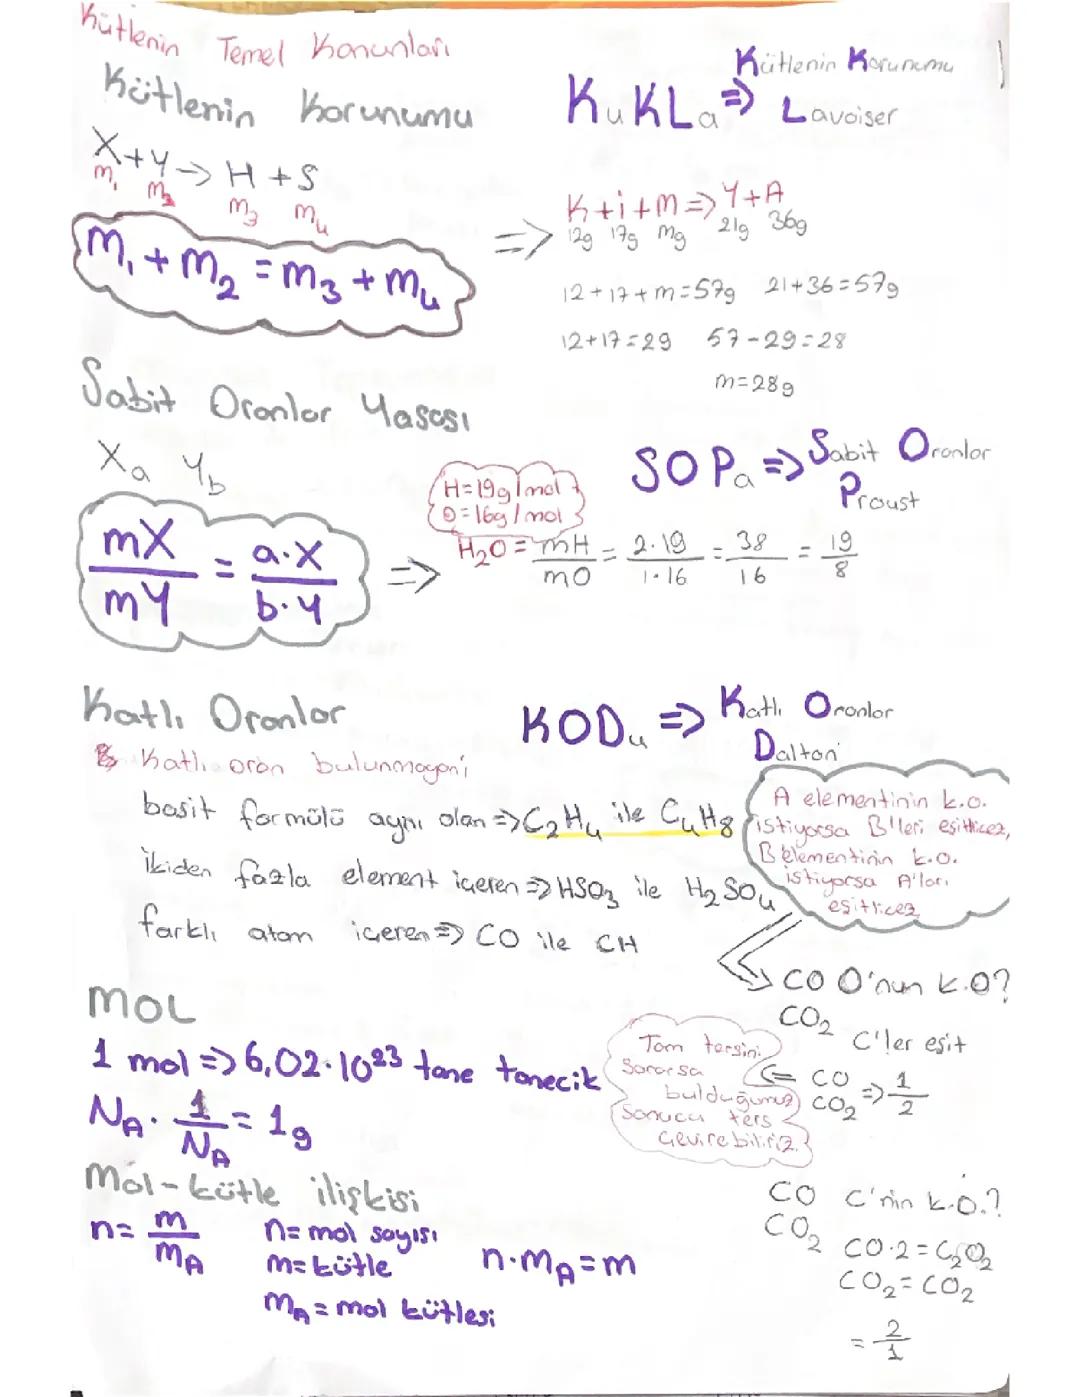 Kütlenin Temel Kanunları
Kütlenin Korunumu
KuKLa => Kütlenin Korunumu
Lavoiser
X+Y -> H + S
m₁ m₂ m₃ m₄
m₁ + m₂ = m₃ + m₄
=> K+i+m => Y+A
12g 17g mg 21g 36g
12+17+m=57g 21+36=57g
12+17=29 57-29=28
m=28g
Sabit Oranlar Yasası
SOPa => Sabit Oranlar
Proust
Xa Yb
mX/mY = a.X/b.Y =>
H=19g/mol
O=16g/mol
H₂O = mH/mO = 2.19/1.16 = 38/16 = 19/8
Katlı Oranlar
KODu => Katlı Oranlar
Dalton
Katlı oran bulunmayan
basit formülü aynı olan => C₂H₄ ile C₄H₈
ikiden fazla element içeren => HSO₃ ile H₂SO₄
farklı atom içeren => CO ile CH
A elementinin k.o.
istiyorsa B'leri eşitlicez,
B elementinin k.o.
istiyorsa A'ları
eşitlicez
CO O'nun k.O?
CO₂ C'ler eşit
CO
CO₂ => 1/2
Tam tersini
Sorarsa
bulduğumuz
Sonucu ters
çevirebiliriz.
MOL
1 mol => 6,02.10²³ tane tanecik
NA . 1/NA = 1g
Mol-kütle ilişkisi
n= m/mA
n= mol sayısı
m= kütle
mA = mol kütlesi
n.mA = m
CO C'nin k.O.?
CO₂
CO.2 = C₂O₂
CO₂ = CO₂
= 2/1